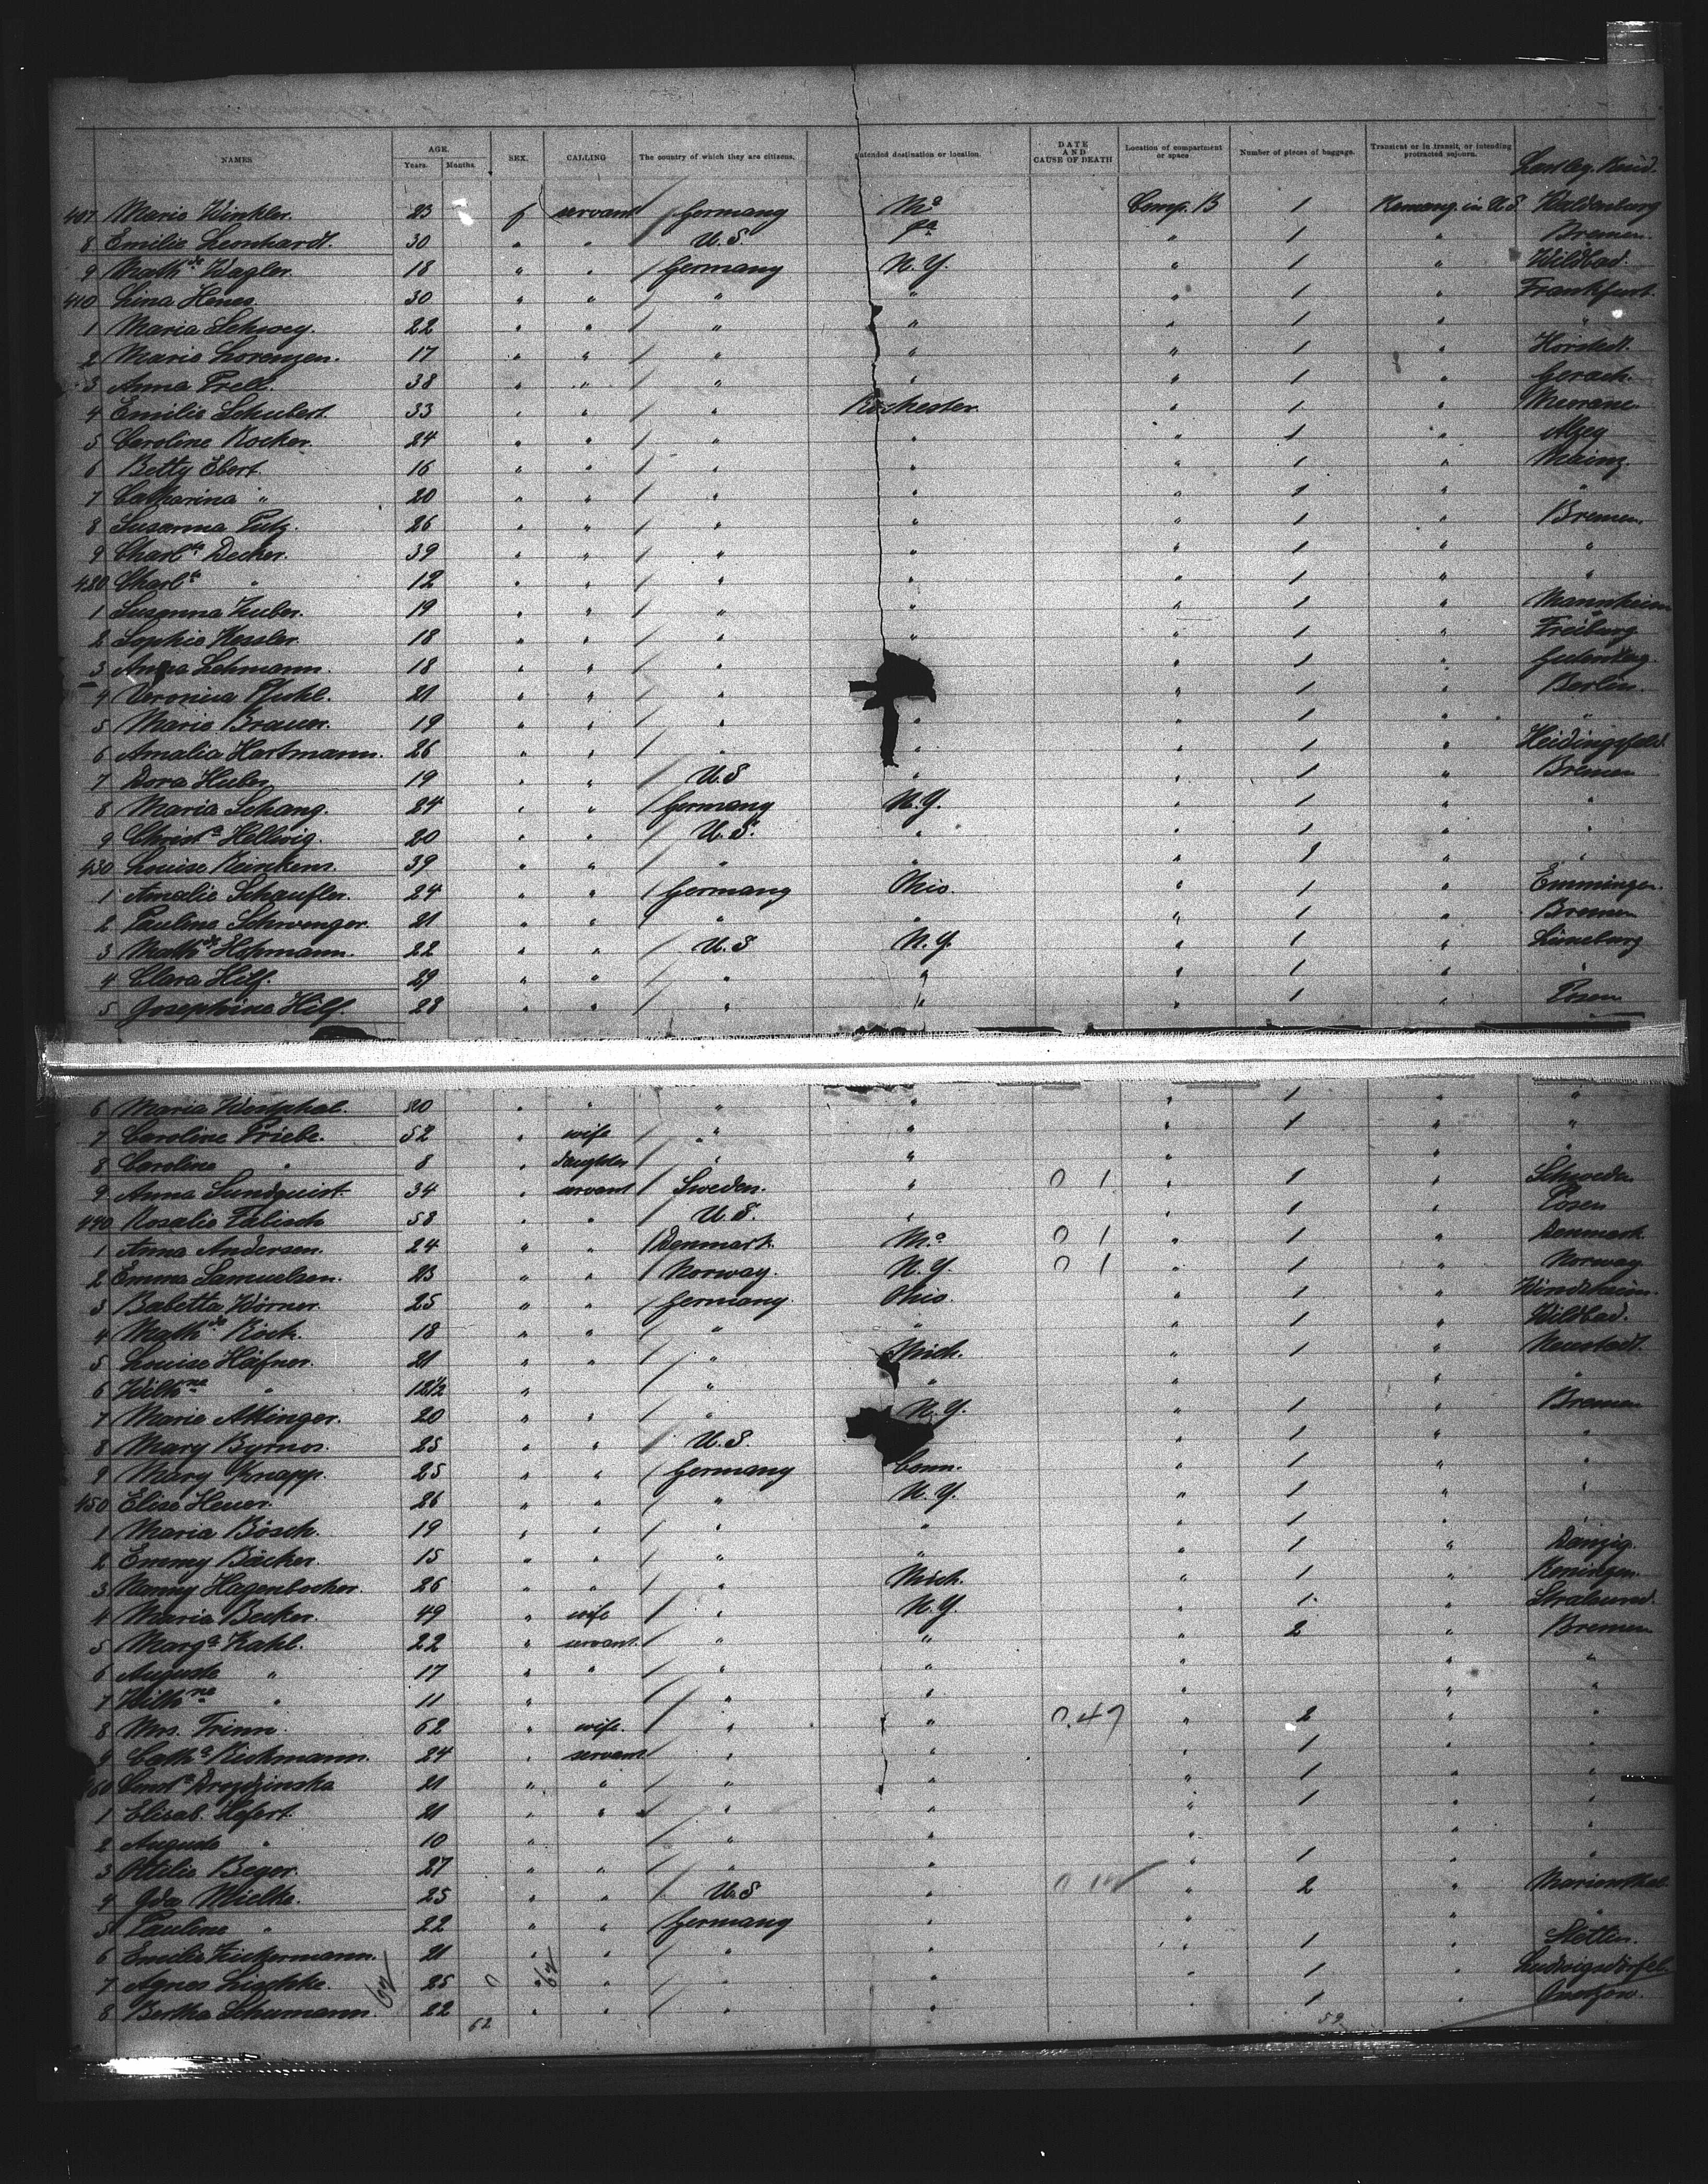 NAMES AGE. Years. Months. SEX. CALLING The country of which they are citizens. Intended destination or location. DATE AND CAUSE OF DEATH Location of compartment or space Number of pieces of baggage. Transient or in transit, or intending protracted sojourn. Last leg. Resid.
407 Marie Winkler. 23 f servant / Germany Mo Comp. B 1 Remang. in U.S. Waldenburg
8 Emilie Leonhardt. 30 " " U.S. Pa " 1 " Bremen
9 Mathde Wagler. 18 " " / Germany N.Y. " 1 " Wildbad.
410 Lina Henes. 30 " " / " " " 1 " Frankfurt.
1 Maria Schwey. 22 " " / " " " 1 " "
2 Marie Lorenzen. 17 " " / " " " 1 " Horstedt.
3 Anna Prell. 38 " " / " " " 1 " Gerach.
4 Emilie Schubert. 33 " " / " Rochester. " 1 " Meerane
5 Caroline Kocker. 24 " " / " " " 1 " Alzey
6 Betty Ebert. 16 " " / " " " 1 " Mainz.
7 Catharina " 20 " " / " " " 1 " "
8 Susanna Putz. 26 " " / " " " 1 " Bremen
9 Charlte Decker. 39 " " / " " " 1 " "
420 Charlte " 12 " " / " " " 1 " "
1 Susanna Huber. 19 " " / " " " 1 " Mannheim
2 Sophie Kessler. 18 " " / " " " 1 " Freiburg
3 Anna Lehmann. 18 " " / " " 1 "
4 Veronica 21 " " / " " 1 " Berlin.
5 Marie Brauer. 19 " " / " " " 1 " "
6 Amalia Hartmann. 26 " " / " " " 1 " Heidingsfeld.
7 Dora Huber 19 " " / U.S " " 1 " Bremen
8 Maria Schang. 24 " " / Germany N.Y. " 1 " "
9 Christe Hellwig. 20 " " / U.S. " " 1 " "
430 Louise Reinkens. 39 " " / " " " 1 " "
1 Amalie Schaufler. 24 " " / Germany Ohio. " 1 " Emmingen.
2 Pauline Schwenger. 21 " " / " " " 1 " Bremen
3 Mathde Hofmann. 22 " " / U.S N.Y. " 1 " Lüneburg
4 Clara Hilf. 29 " " / " " " 1 " "
5 Josephine Hilf. 28 " " / " " " 1 " Posen
6 Maria Westphal. 20 " " " " " 1 " "
7 Caroline Priebe. 52 " wife / " " " 1 " "
8 Caroline " 8 " daughter / " " " " "
9 Anna Sundquist 34 " servant / Sweden. " 0 1 " 1 " Schweden
440 Rosalie Fabisch 58 " " / U.S. " " 1 " Posen
1 Anna Andersen. 24 " " / Denmark. Mo 0 1 " 1 " Denmark.
2 Emma Samuelsen. 23 " " / Norway. N.Y. 0 1 " 1 " Norway
3 Babetta Wörner. 25 " " / Germany. Ohio. " 1 " Windsheim.
4 Mathde Koch. 18 " " / " " " 1 " Wildbad.
5 Louise Häfner. 21 " " / " Mich. " 1 " Neustadt.
6 Wilhne " 12½ " / " " " " "
7 Marie Attinger. 20 " " / " N.Y. " 1 " Bremen
8 Mary Byrnes. 25 " " / U.S. " 1 " "
9 Mary Knapp. 25 " " / Germany Conn. " 1 " "
450 Elise Heuer. 26 " " / " N.Y. " 1 " "
1 Maria Bösch. 19 " " / " " " 1 "
2 Emmy Bäcker. 15 " " / " " " 1 " Danzig.
3 Nanny Hagenbocker. 26 " " / " Mich. " 1 "
4 Maria Becker. 49 " wife / " N.Y. " 1 " Stralsund.
5 Marga Kahl. 22 " servant / " " " 2 " Bremen
6 Auguste " 17 " " / " " " " "
7 Wilhne " 11 " / " " " " "
8 Mrs. Trinn. 62 " wife / " " 0.49 " 2 " "
9 Catha Rickmann. 24 " servant / " " " 1 " "
460 Consta Drozdzinska 21 " " / " " " 1 " "
1 Elisab. Hefert. 21 " " / " " " 1 " "
2 Auguste " 10 " / " " " " "
3 Ottilie Beger. 27 " " / " " " 1 " "
4 Ida Mielke. 25 " " / U.S " " 2 " Marienthal
5 Pauline " 22 " " / Germany " " " "
6 Emilie Zickermann. 21 " " / " " " 1 " Stettin.
7 Agnes Lischke. 25 0 " 62 " / " " " 1 " Ludwigsdorf
8 Bertha Schumann. 62 22 " " / " " " 1 "
62 59